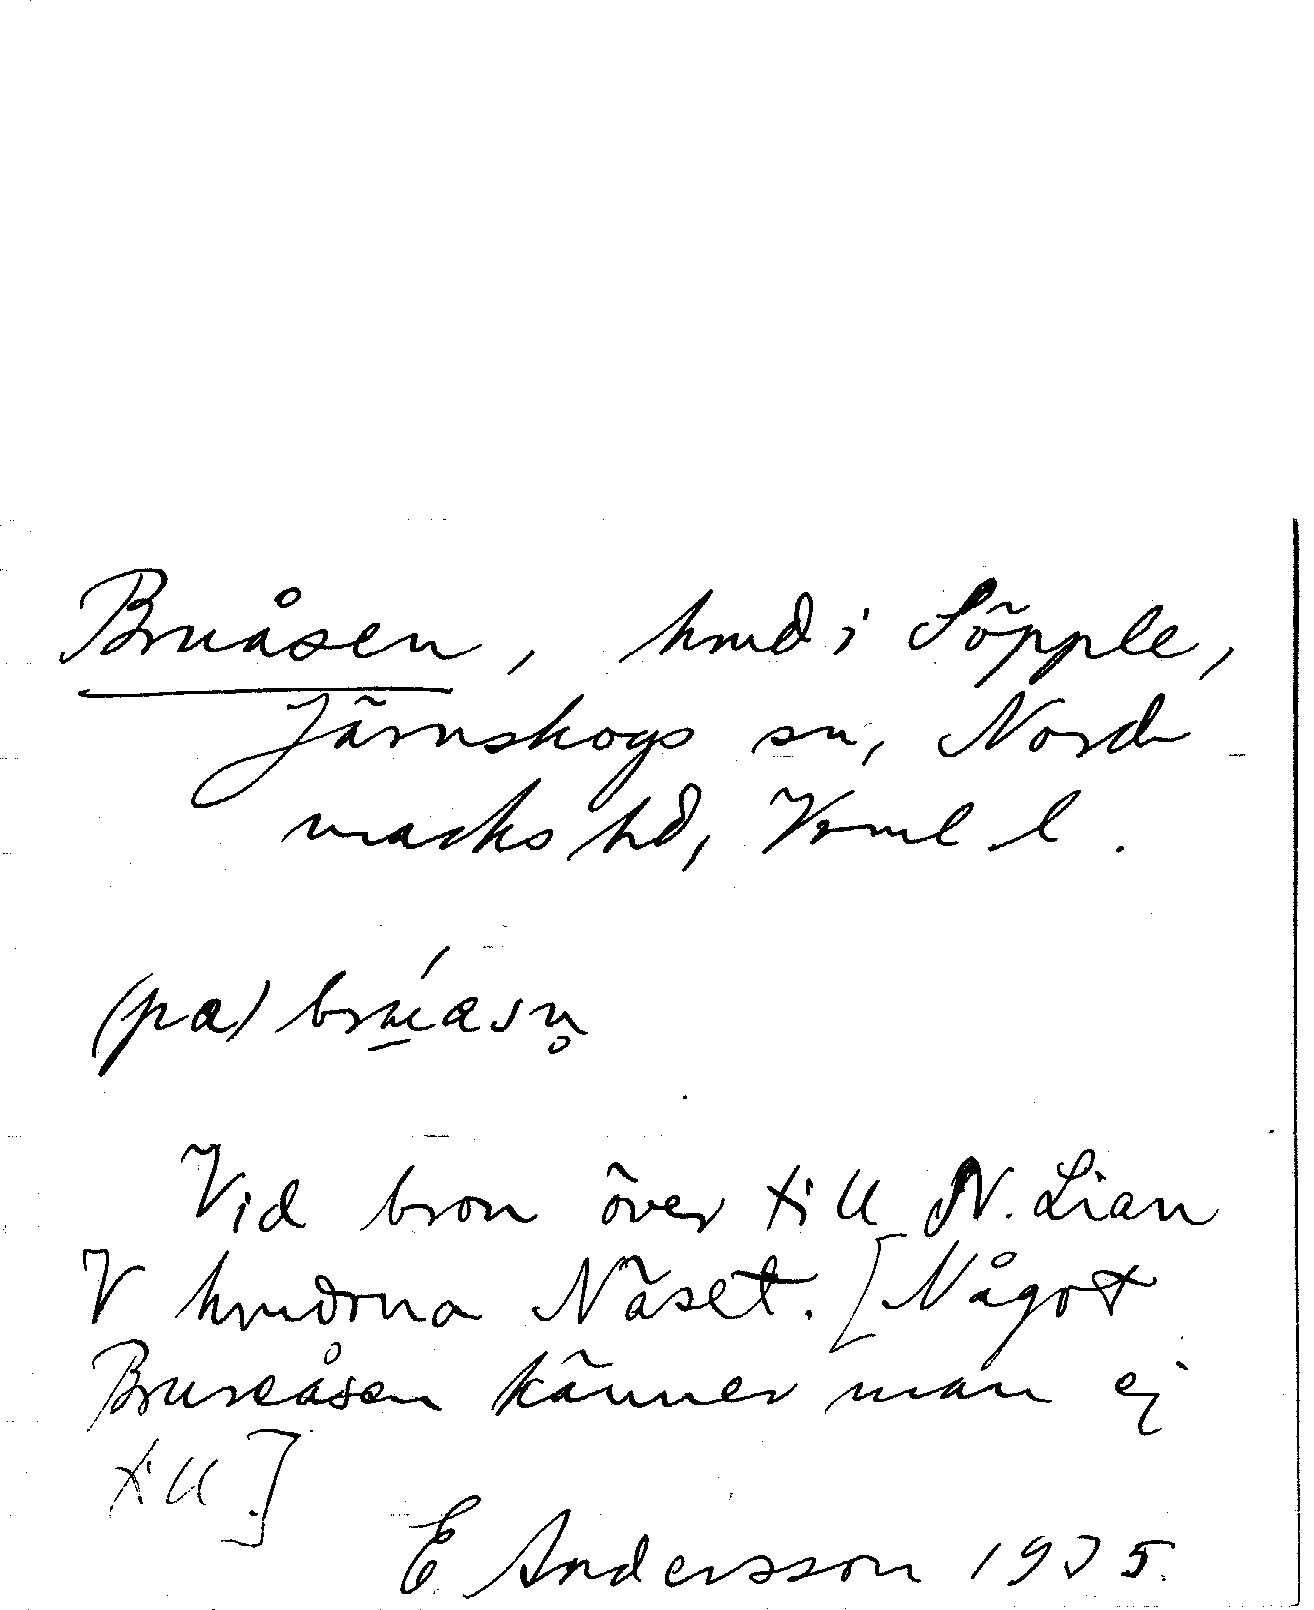 Bruåsen, hmd i Söpple,
Järnskogs sn, Nord
marks hd, Vrml l.
(pa) brúasn̥
Vid bron över till N. Lian
V hmdrna Näset. [Något
Brureåsen känner man ej
till.]
E Andersson 1935